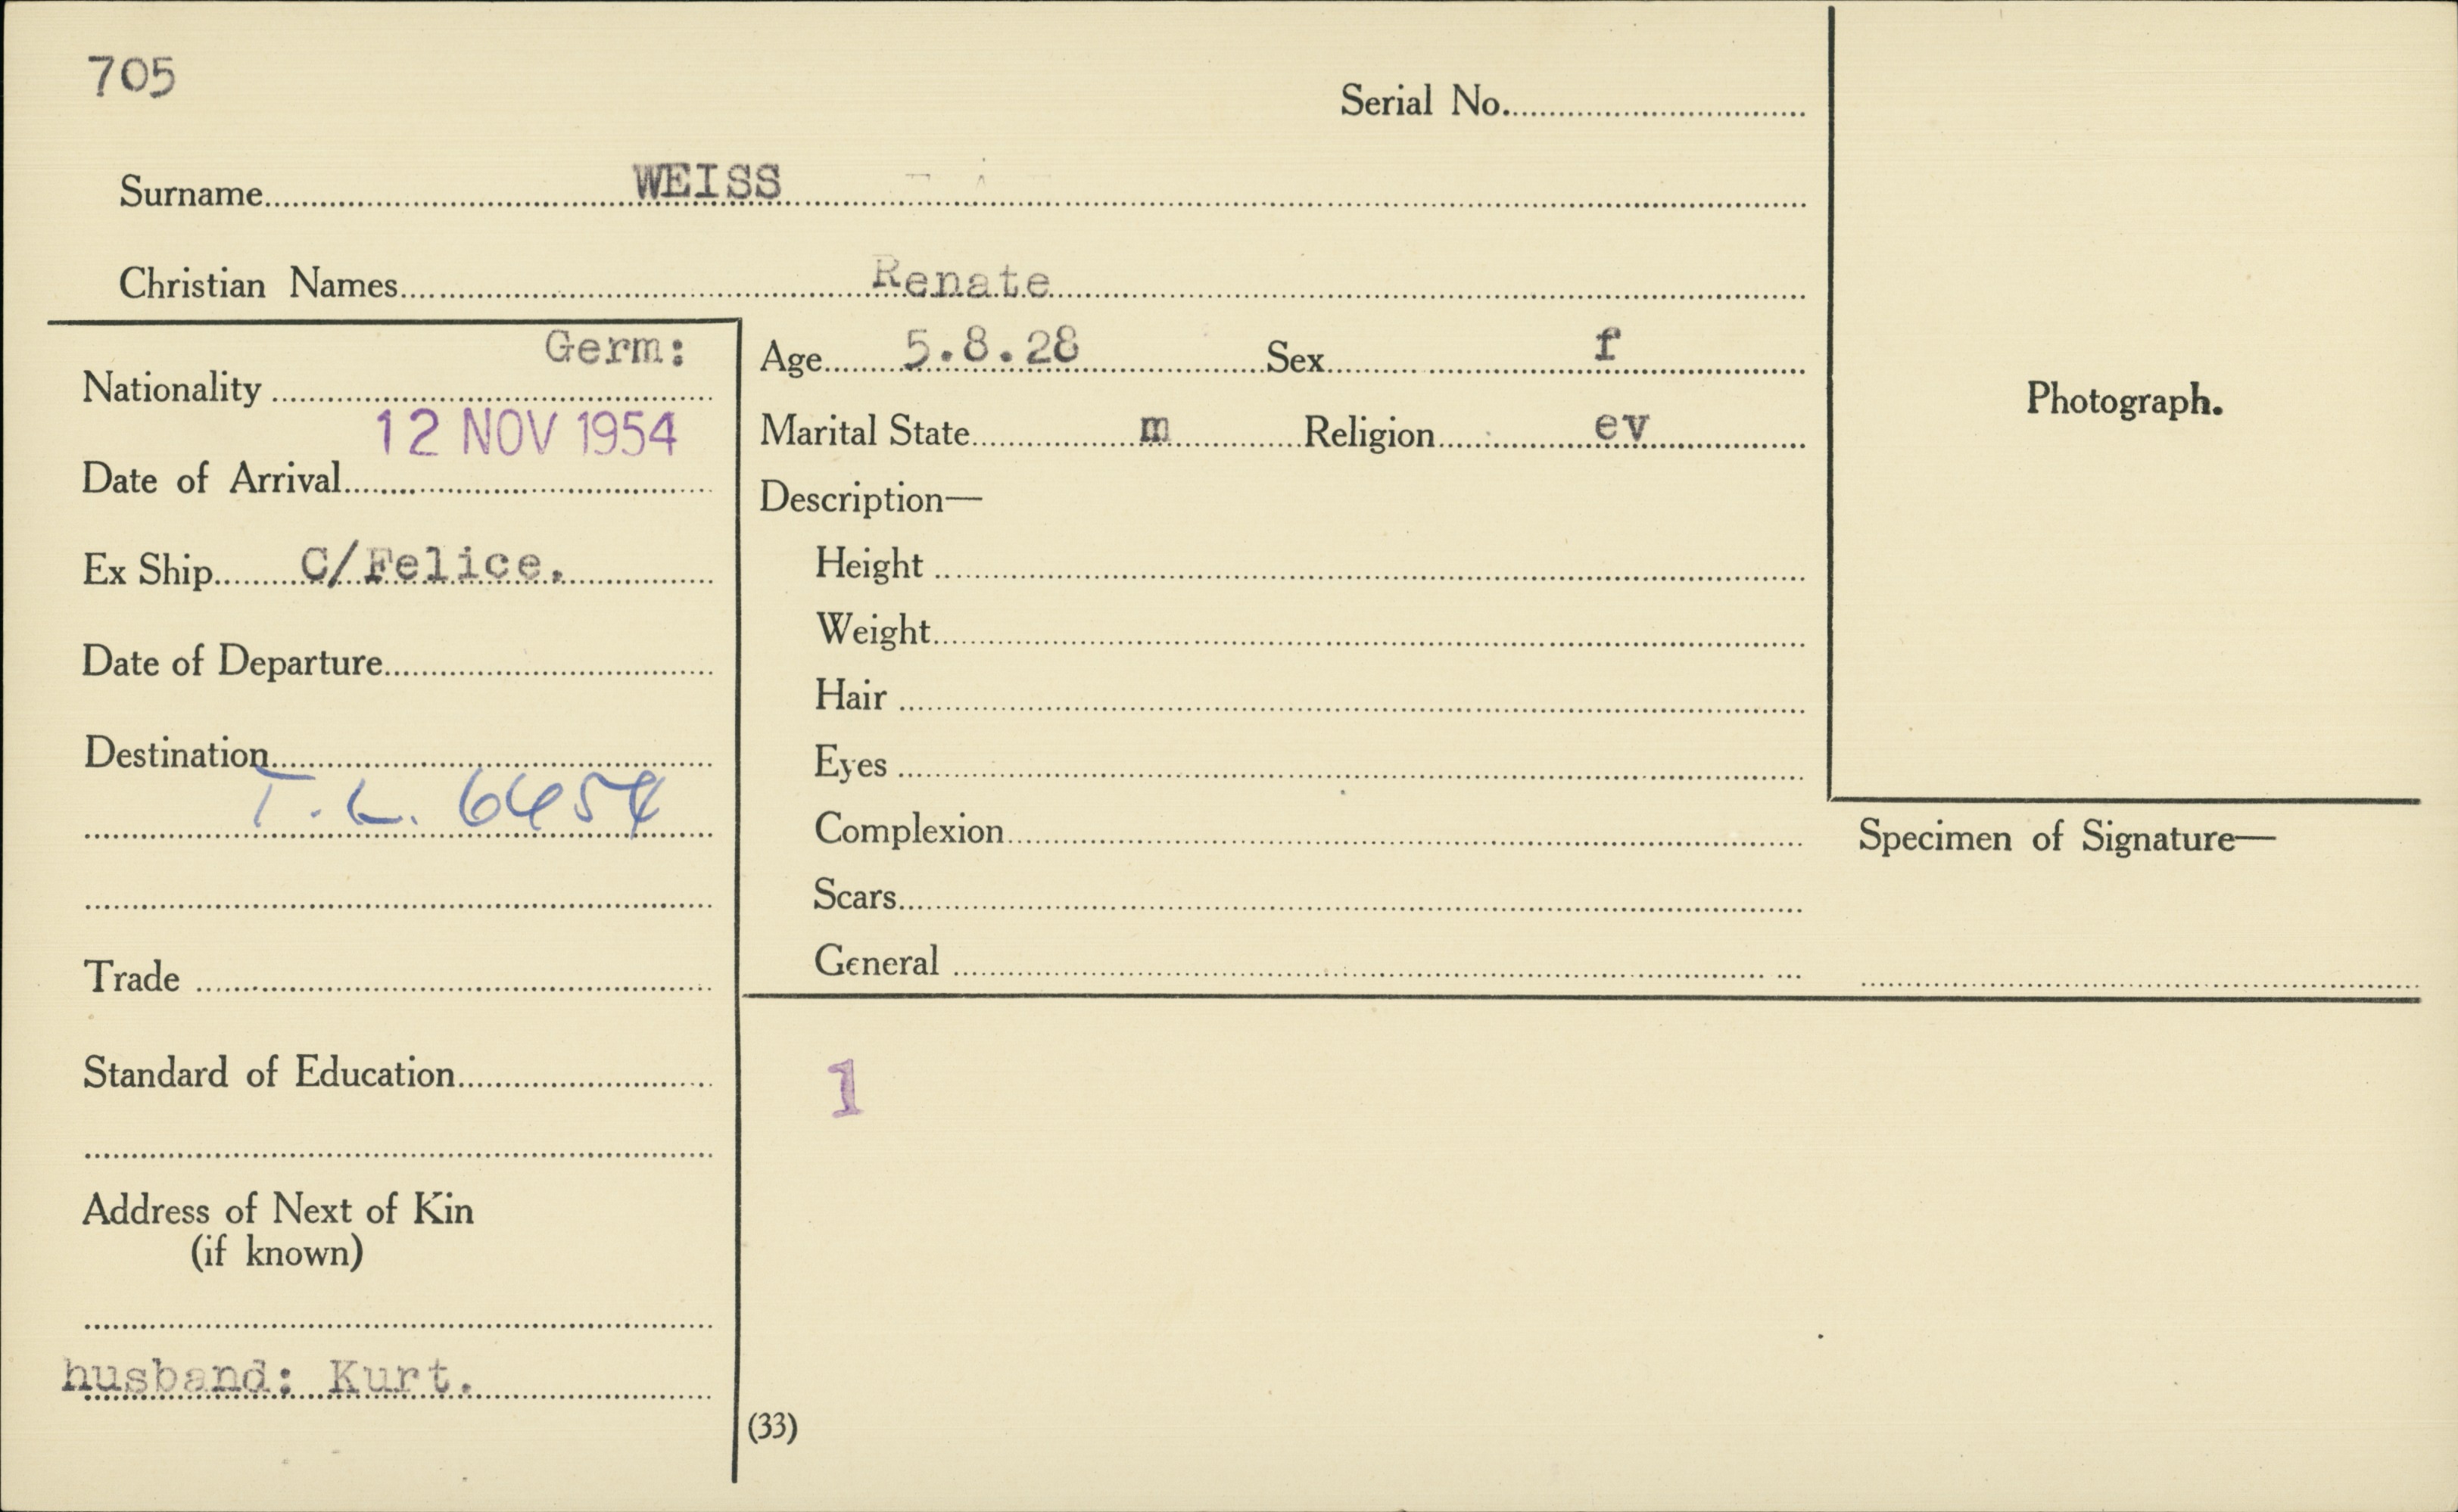 705
Serial No.
Surname WEISS
Christian Names Renate
Germ:
Nationality
12 NOV 1954
Date of Arrival
Ex Ship C/Felice.
Date of Departure
Destination
T. L. 6454
Trade
Standard of Education
Address of Next of Kin
(if known)
husband: Kurt.
Age 5.8.28 Sex f
Marital State m Religion ev
Description—
Height
Weight
Hair
Eyes
Complexion
Scars
General
Photograph.
Specimen of Signature—
1
(33)